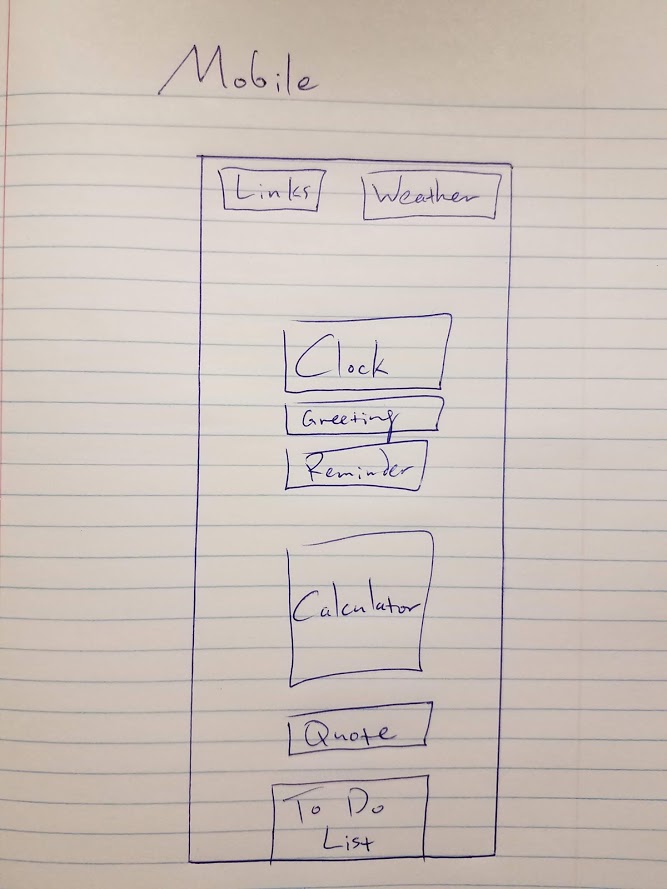 Mobile
Links Weather
Clock
Greeting
Reminder
Calculator
Quote
To Do
List